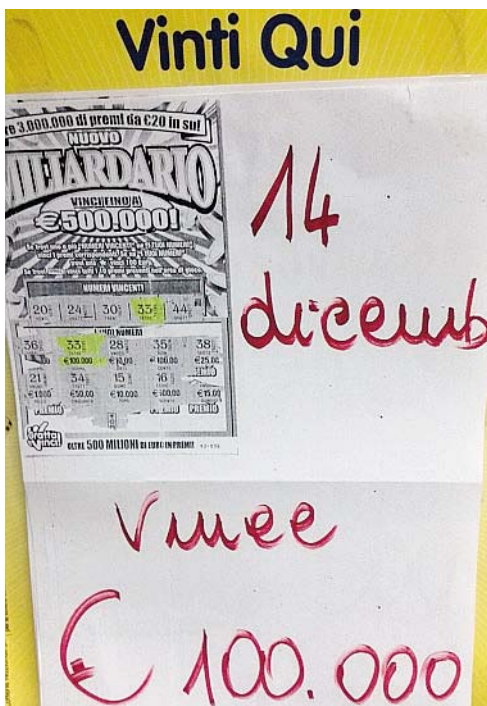 Vinti Qui
re 3.000.000 di premi da €20 in su!
NUOVO
MILIARDARIO
VINCI FINO A
€500.000!
NUMERI VINCENTI
20 24 30 33 44
I TUOI NUMERI
36 33 28 35 38
€100.000 €10,00 €100,00 €25,00
21 34 15 16
€1.000 €50,00 €10.000 €500,00 €15,00
PREMIO PREMIO PREMIO
Gratta e Vinci
OLTRE 500 MILIONI DI EURO IN PREMI
14
dicemb
Vince
€ 100.000